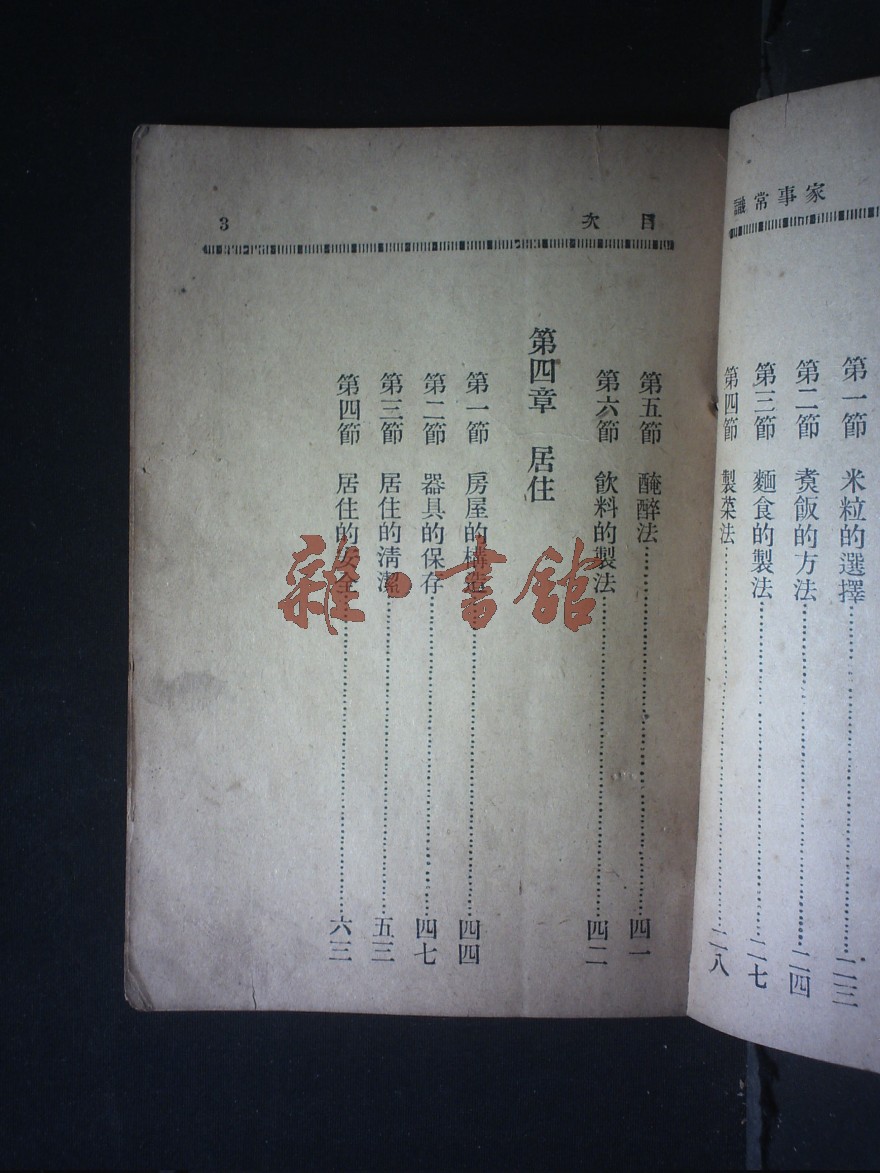 家事常識
第一節 米粒的選擇……二三
第二節 煑飯的方法……二四
第三節 麵食的製法……二七
第四節 製菜法……二八
目次 3
第五節 醃醉法……四一
第六節 飲料的製法……四二
第四章 居住
第一節 房屋的構造……四四
第二節 器具的保存……四七
第三節 居住的清潔……五三
第四節 居住的安全……六三
雜·書館